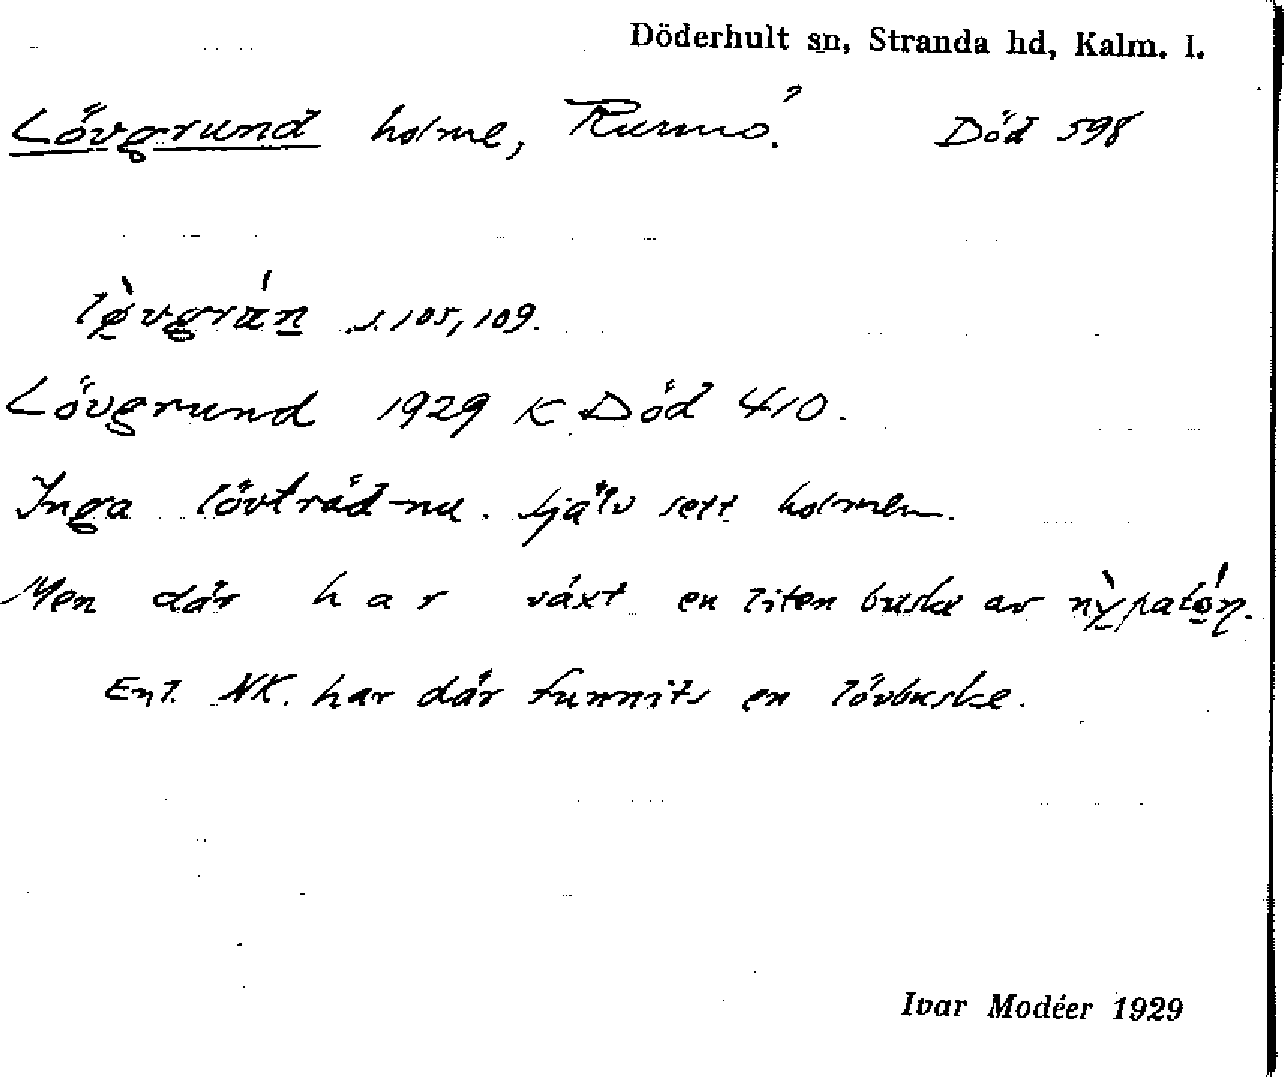 Döderhult sn, Stranda hd, Kalm. l.
Lövgrund holme, Runnö. Död 598
s. 105, 109.
Lövgrund 1929 K Död 410.
Inga lövträd nu. Själv sett holmen.
Men där har växt en liten buske av
Enl. NK. har där funnits en lövbuske.
Ivar Modéer 1929